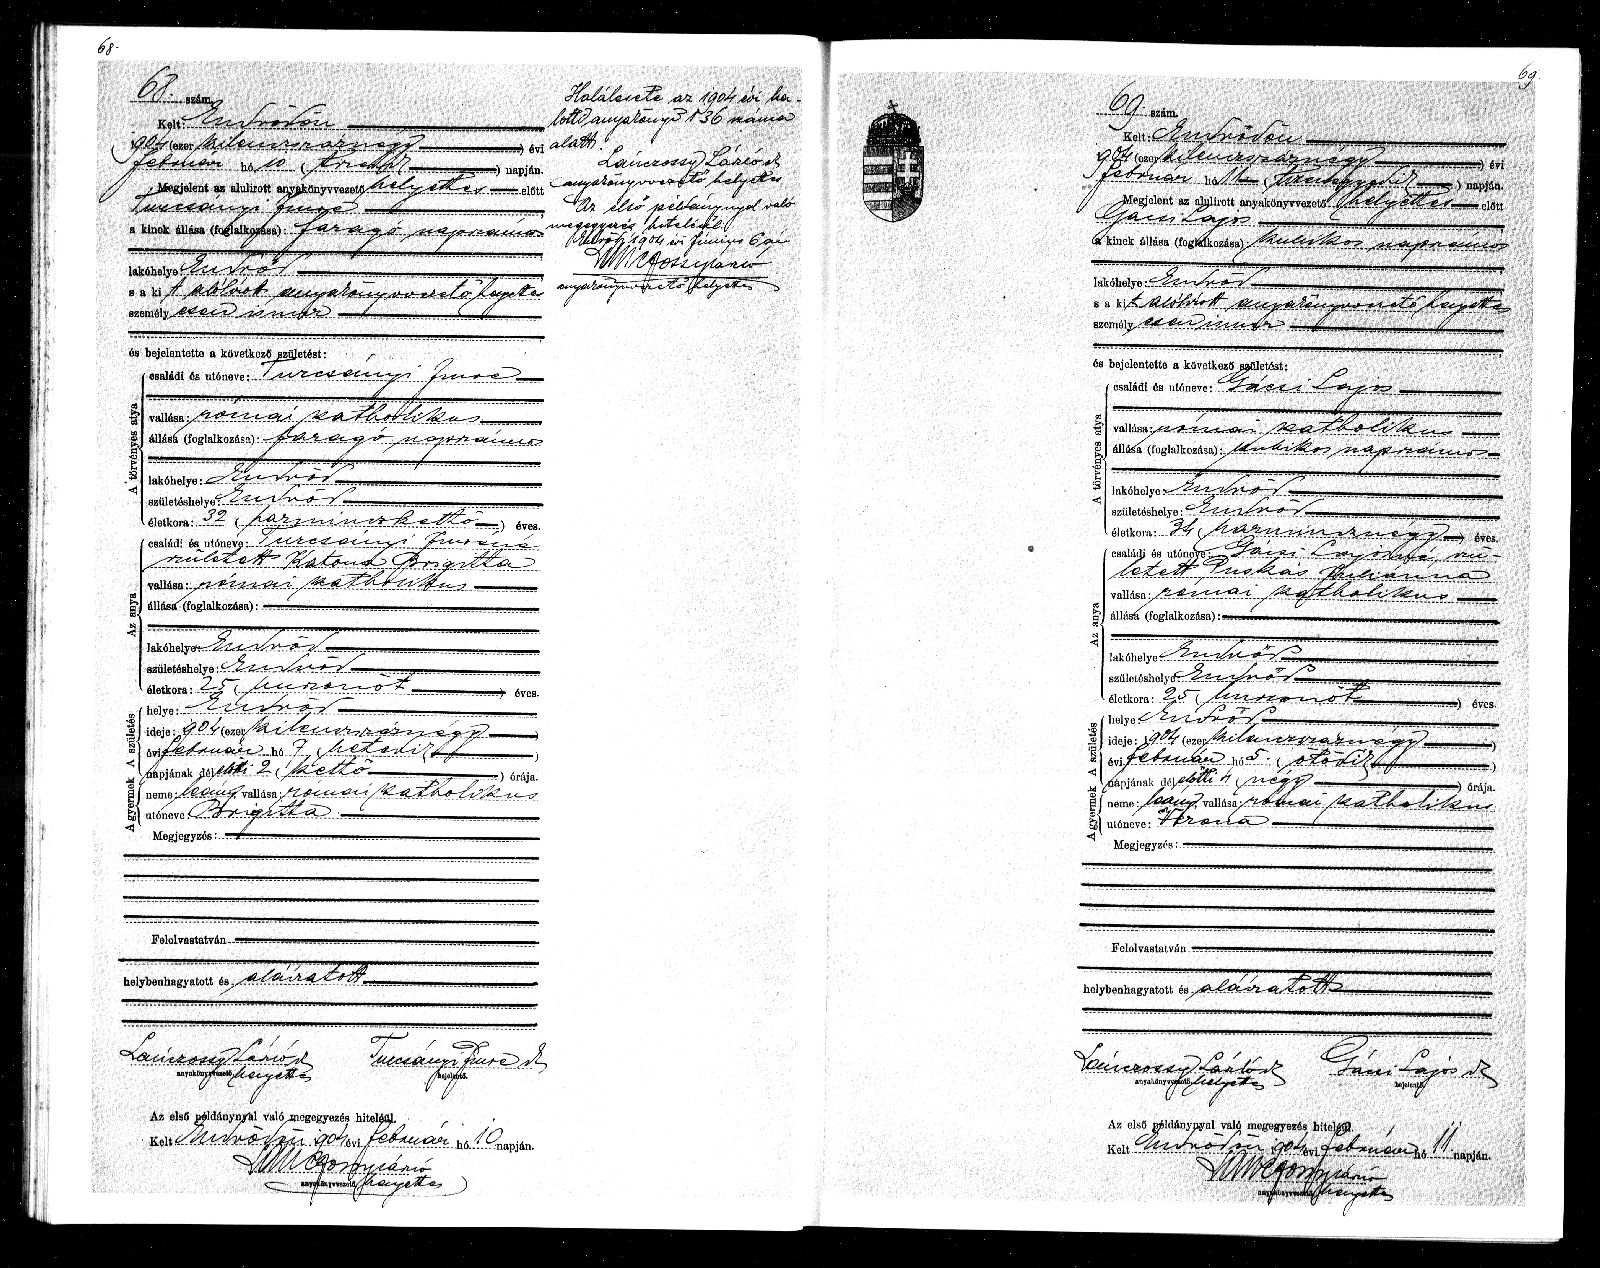 68.
68. szám.
Kelt: Endrődön
904 (ezer kilenczszáznégy) évi
február hó 10 (tizedik) napján.
Megjelent az alulirott anyakönyvvezető helyettes előtt
Turcsányi Imre
a kinek állása (foglalkozása): faragó, napszámos
lakóhelye: Endrőd
s a kit alólirott anyakönyvvezető helyettes
személyesen ismer
és bejelentette a következő születést:
A törvényes atya
családi és utóneve: Turcsányi Imre
vallása: római katholikus
állása (foglalkozása): faragó, napszámos
lakóhelye: Endrőd
születéshelye: Endrőd
életkora: 32 (harminczkettő) éves.
Az anya
családi és utóneve: Turcsányi Imréné
született Katona Brigitta
vallása: római katholikus
állása (foglalkozása):
lakóhelye: Endrőd
születéshelye: Endrőd
életkora: 25 (huszonöt) éves.
A gyermek A születés
helye: Endrőd
ideje: 904 (ezer kilenczszáznégy)
évi február hó 7 (hetedik)
napjának délelőtti 2 (kettő) órája.
neme: leány vallása: római katholikus
utóneve: Brigitta
Megjegyzés:
Felolvastatván
helybenhagyatott és aláiratott
Lánczossy László sk Turcsányi Imre sk
anyakönyvvezető helyettes bejelentő.
Az első példánynyal való megegyezés hiteléül.
Kelt Endrődön 904 évi február hó 10 napján.
Lánczossy László
anyakönyvvezető helyettes
Halálesete az 1904 évi ha-
lotti anyakönyv 136 száma
alatt.
Lánczossy László sk
anyakönyvvezető helyettes
Az első példánynyal való
megegyezés hiteléül
Endrőd, 1904 évi június 6 án
Lánczossy László
anyakönyvvezető helyettes
69.
69. szám.
Kelt: Endrődön
904 (ezer kilenczszáznégy) évi
február hó 11 (tizenegyedik) napján.
Megjelent az alulirott anyakönyvvezető helyettes előtt
Gácsi Lajos
a kinek állása (foglalkozása): kubikos napszámos
lakóhelye: Endrőd
s a kit alólirott anyakönyvvezető helyettes
személyesen ismer
és bejelentette a következő születést:
A törvényes atya
családi és utóneve: Gácsi Lajos
vallása: római katholikus
állása (foglalkozása): kubikos napszámos
lakóhelye: Endrőd
születéshelye: Endrőd
életkora: 34 (harmincznégy) éves.
Az anya
családi és utóneve: Gácsi Lajosné, szü-
letett Puskás Juliánna
vallása: római katholikus
állása (foglalkozása):
lakóhelye: Endrőd
születéshelye: Endrőd
életkora: 25 (huszonöt) éves.
A gyermek A születés
helye: Endrőd
ideje: 1904 (ezer kilenczszáznégy)
évi február hó 5. (ötödik)
napjának délelőtti 4 (négy) órája.
neme: leány. vallása: római katholikus
utóneve: Verona
Megjegyzés:
Felolvastatván
helybenhagyatott és aláiratott
Lánczossy László sk Gácsi Lajos sk
anyakönyvvezető helyettes bejelentő.
Az első példánynyal való megegyezés hiteléül.
Kelt Endrődön 1904 évi február hó 11 napján.
Lánczossy László
anyakönyvvezető helyettes